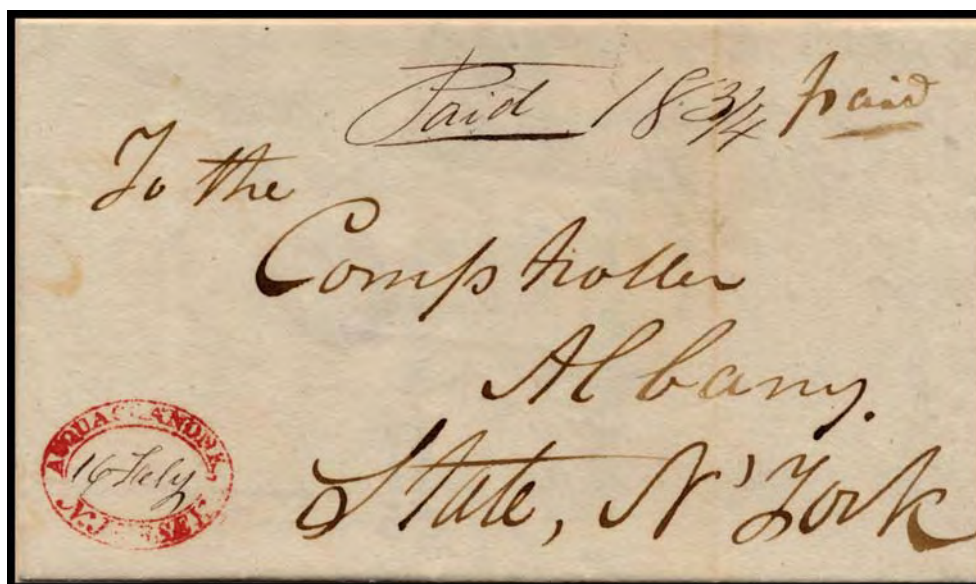 Paid 18 3/4 paid
To the
Comptroller
Albany.
State, N' York
16 July
N.JERSEY